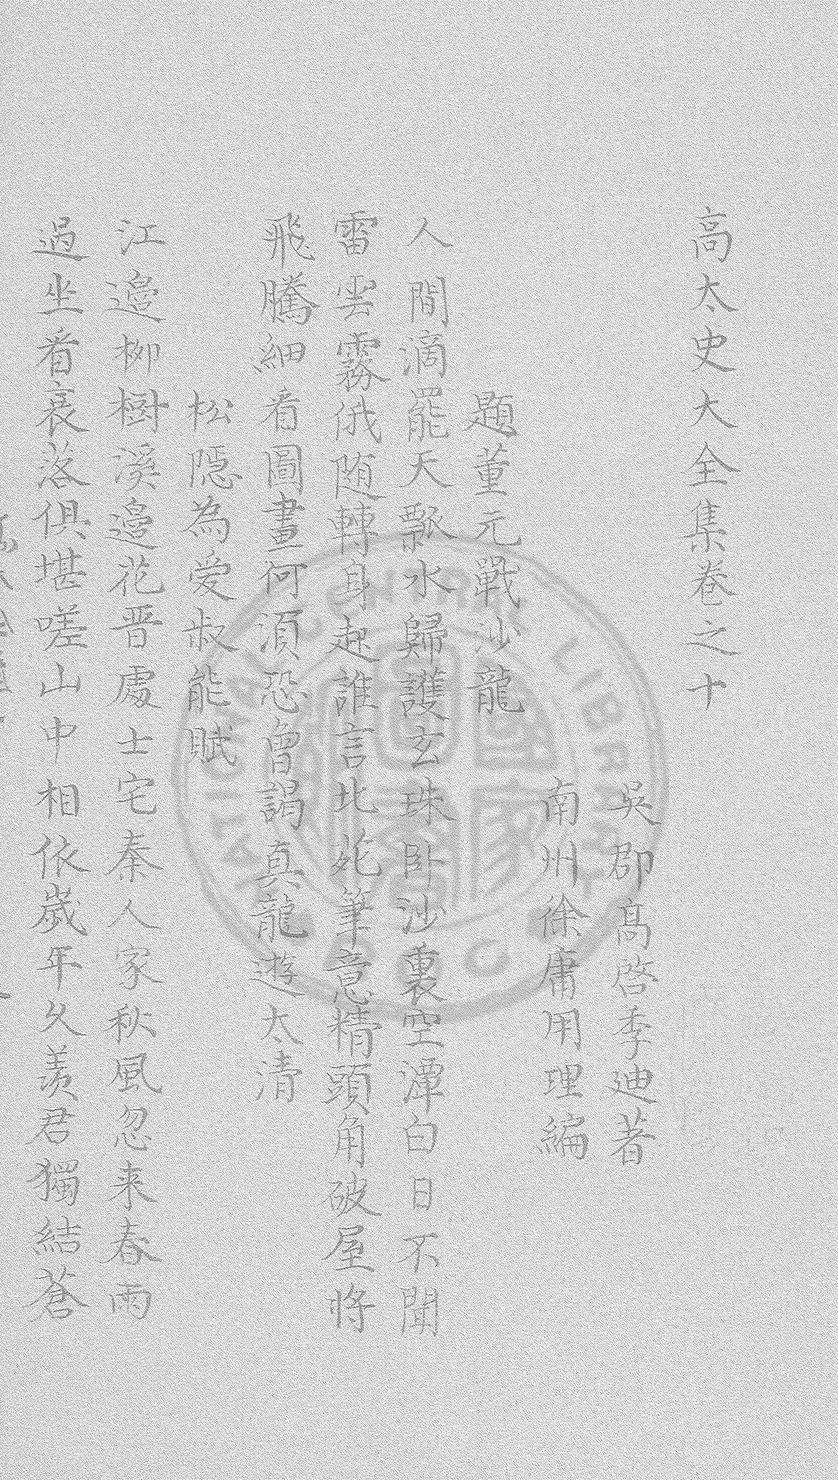 高太史大全集卷之十
吳郡高啓季迪著
南州徐庸用理編
題董元戰沙龍
人間滴罷天瓢水歸護玄珠卧沙裏空潭白日不聞
雷雲霧俄随轉身起誰言此死筆意精頭角破屋將
飛騰細看圖畫何湏恐曾謁真龍遊太清
松隠為愛叔能賦
江邉柳樹溪邉花晋處士宅秦人家秋風忽来春雨
過坐看衰落俱堪嗟山中相依歲年久羨君獨結蒼
NATIONAL CENTRAL LIBRARY
國家圖書館